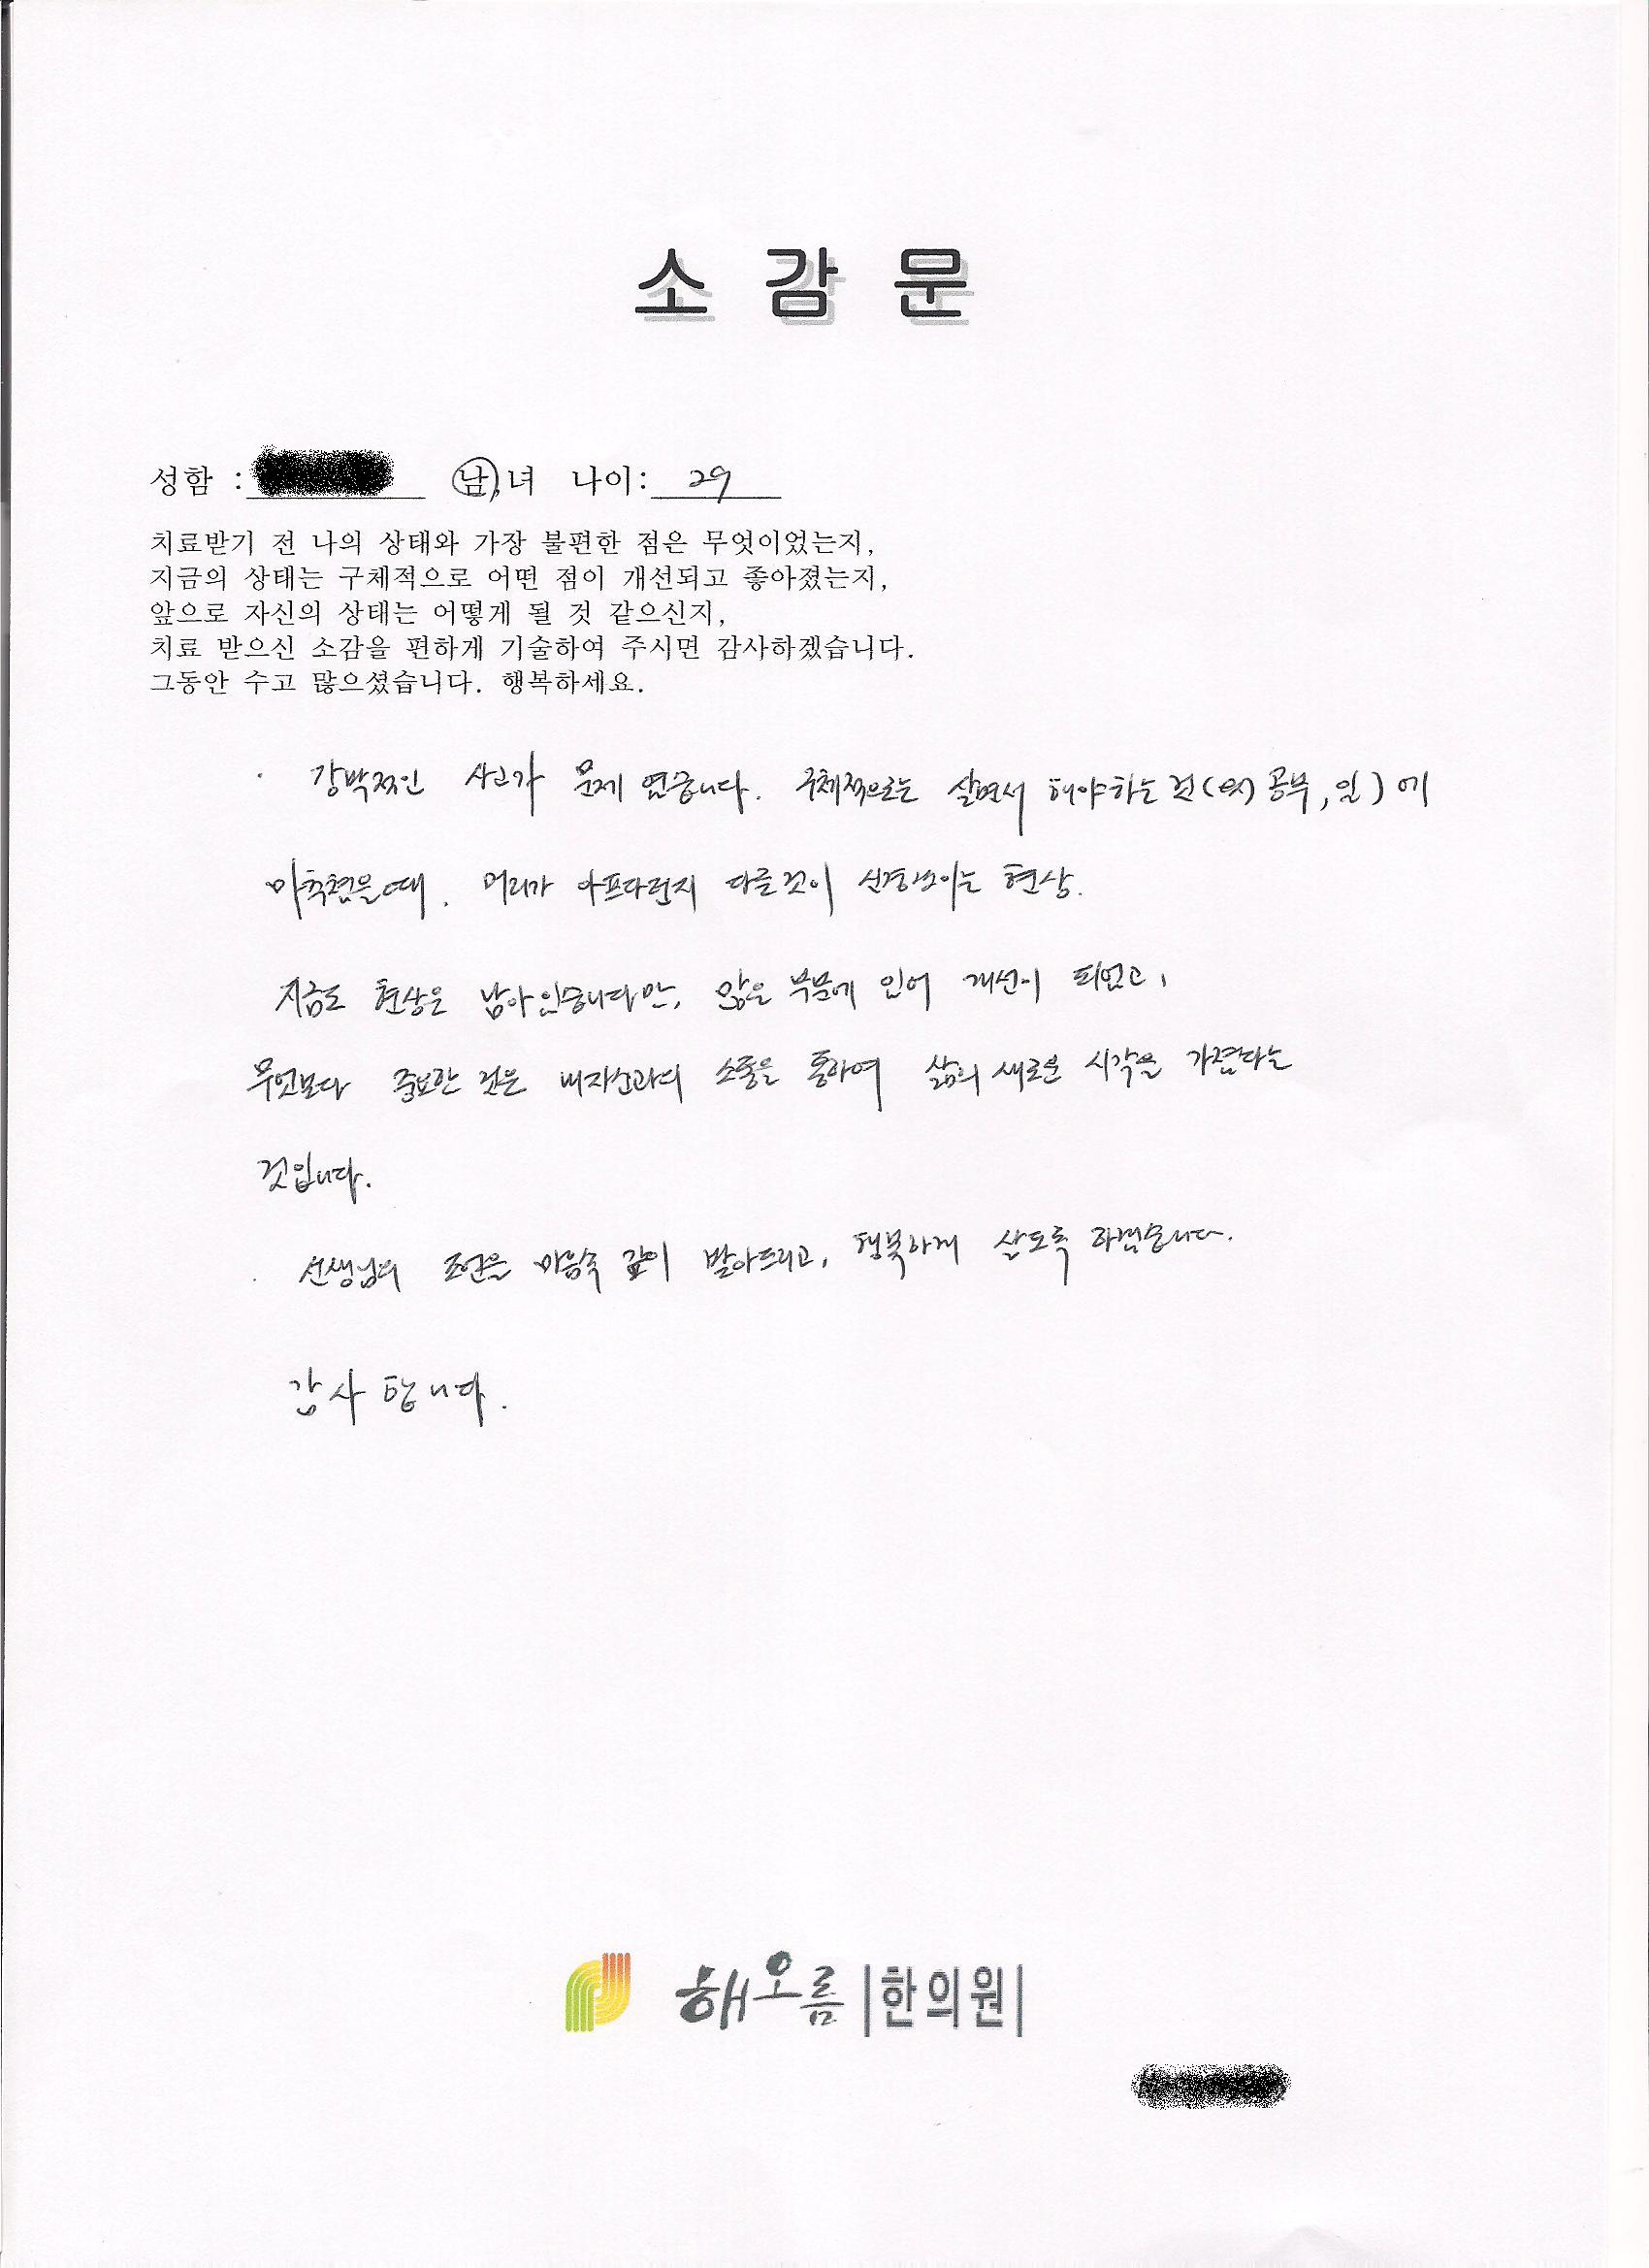 소 감 문
성함 : 남,녀 나이: 29
치료받기 전 나의 상태와 가장 불편한 점은 무엇이었는지,
지금의 상태는 구체적으로 어떤 점이 개선되고 좋아졌는지,
앞으로 자신의 상태는 어떻게 될 것 같으신지,
치료 받으신 소감을 편하게 기술하여 주시면 감사하겠습니다.
그동안 수고 많으셨습니다. 행복하세요.
· 강박적인 사고가 문제 였습니다. 구체적으로는 살면서 해야하는 것(예) 공부, 일)에
마주쳤을때. 머리가 아프다던지 다른것이 신경쓰이는 현상.
지금도 현상은 남아있습니다만, 많은 부분에 있어 개선이 되었고,
무엇보다 중요한 것은 내자신과의 소통을 통하여 삶의 새로운 시각을 가졌다는
것입니다.
· 선생님의 조언을 마음속 깊이 받아드리고, 행복하게 살도록 하겠습니다.
감사합니다.
해오름 |한의원|